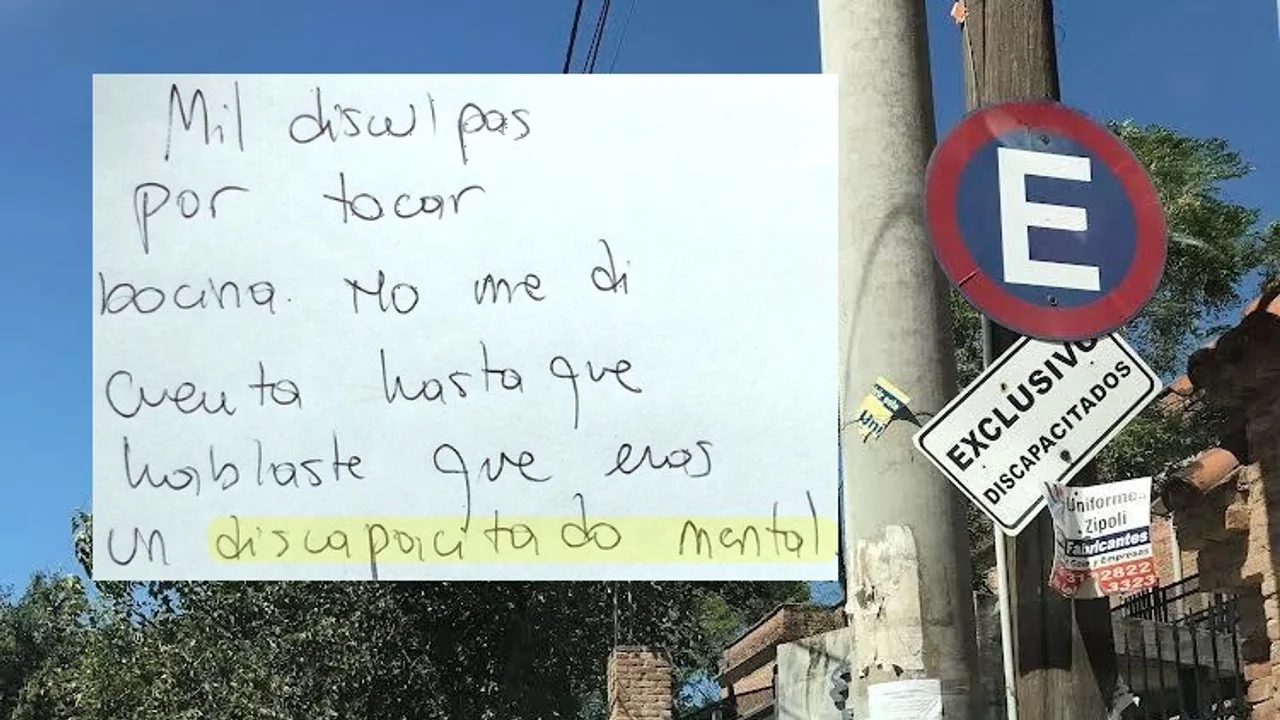 Mil disculpas
por tocar
bocina. No me di
cuenta hasta que
hablaste que eras
un discapacitado mental.
E
EXCLUSIVO
DISCAPACITADOS
Uni
Uniformes
Zipoli
Fabricantes